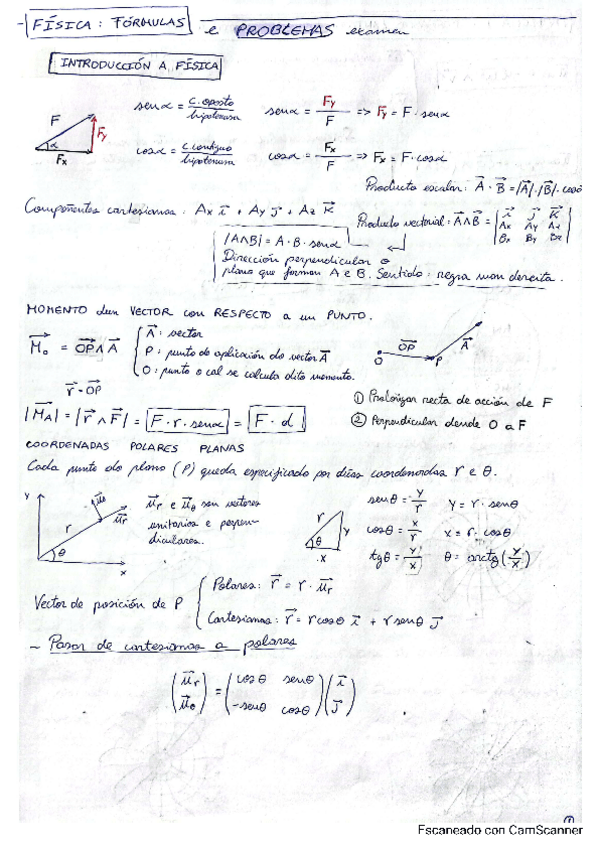 FÍSICA: FÓRMULAS e PROBLEMAS examen
INTRODUCCIÓN A FÍSICA
F
Fy
α
Fx
sen α = c. oposto / hipotenusa
sen α = Fy / F => Fy = F · sen α
cos α = c. contiguo / hipotenusa
cos α = Fx / F => Fx = F · cos α
Producto escalar: A · B = |A| · |B| · cos α
Componentes cartesianas: Ax i + Ay j + Az K
Producto vectorial: A ∧ B = | i j K |
Ax Ay Az
Bx By Bz
|A∧B| = A · B · sen α
Dirección perpendicular o
plano que forman A e B. Sentido: regra man dereita.
MOMENTO dun VECTOR con RESPECTO a un PUNTO.
Mo = OP ∧ A
A: vector
P: punto de aplicación do vector A
O: punto o cal se calcula dito momento.
OP
A
O
P
r = OP
|MA| = |r ∧ F| = F · r · sen α = F · d
① Prolongar recta de acción de F
② Perpendicular dende O a F
COORDENADAS POLARES PLANAS
Cada punto do plano (P) queda especificado por dúas coordenadas r e θ.
y
u
ur
r
θ
x
ur e uθ son vectores
unitarios e perpen-
diculares.
r
y
θ
x
sen θ = y / r
y = r · sen θ
cos θ = x / r
x = r · cos θ
tg θ = y / x
θ = arctg (y / x)
Vector de posición de P
Polares: r = r · ur
Cartesianas: r = r cos θ i + r sen θ j
- Pasar de cartesianas a polares
(ur) = (cos θ sen θ) (i)
(uθ) (-sen θ cos θ) (j)
①
Escaneado con CamScanner